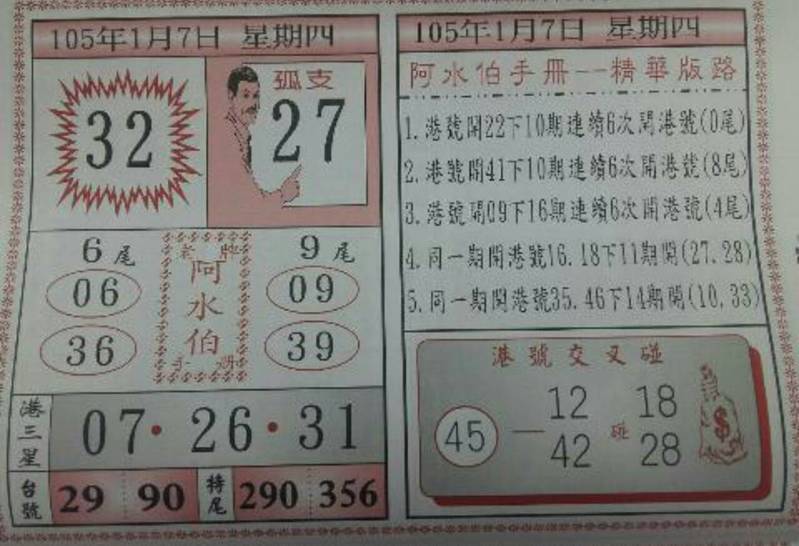 105年1月7日 星期四
32
孤支
27
6尾
9尾
老牌
阿水伯
手冊
06
09
36
39
港三星
07·26·31
台號
29 90
特尾
290 356
105年1月7日 星期四
阿水伯手冊--精華版路
1.港號開22下10期連續6次開港號(0尾)
2.港號開41下10期連續6次開港號(8尾)
3.港號開09下16期連續6次開港號(4尾)
4.同一期開港號16.18下11期開(27.28)
5.同一期開港號35.46下14期開(10.33)
港號交叉碰
12 18
45 — 碰
42 28
$